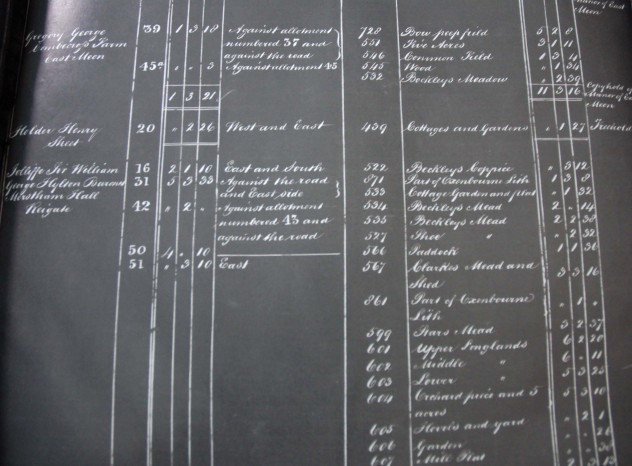 Manor of East
Meon
Gregory George 39 1 3 18 Against allotment 720 Bow peep field 5 2 8
Farm numbered 37 and 551 Five Acres 3 1 11
East Meon against the road 546 Common Field 1 3
45a " " 3 Against allotment 45 545 Wood " 1 34
532 Beckleys Meadow " 2 39
1 3 21 11 3 16 Copyhold of
Manor of East
Meon
Holder Henry 20 " 2 26 West and East 439 Cottages and Gardens " 1 27 Freehold
Jolliffe Sir William 16 2 1 10 East and South 522 Beckleys Coppice " 3 12
George Hylton Baronet 31 5 3 33 Against the road 871 Part of Oxenbourne Lith 1 3 8
Merstham Hall and East side 533 Cottage Garden and plat " 1 32
Reigate 42 " 2 " Against allotment 534 Beckleys Mead 2 " 14
numbered 43 and 535 Beckleys Mead 2 2 38
against the road 527 " " 2 32
50 4 " 10 566 Paddock 1 1 36
51 " 3 10 East 567 Clarkes Mead and 3 3 16
Shed
861 Part of Oxenbourne " 1 "
Lith
599 Mead 3 2 37
601 Upper Longlands 6 2 20
602 Middle " 6 " 11
603 Lower " 5 3 25
604 Orchard piece and 5 5 3 10
acres
605 and yard " 2 1
606 Garden " " 26
607 Mill Plat